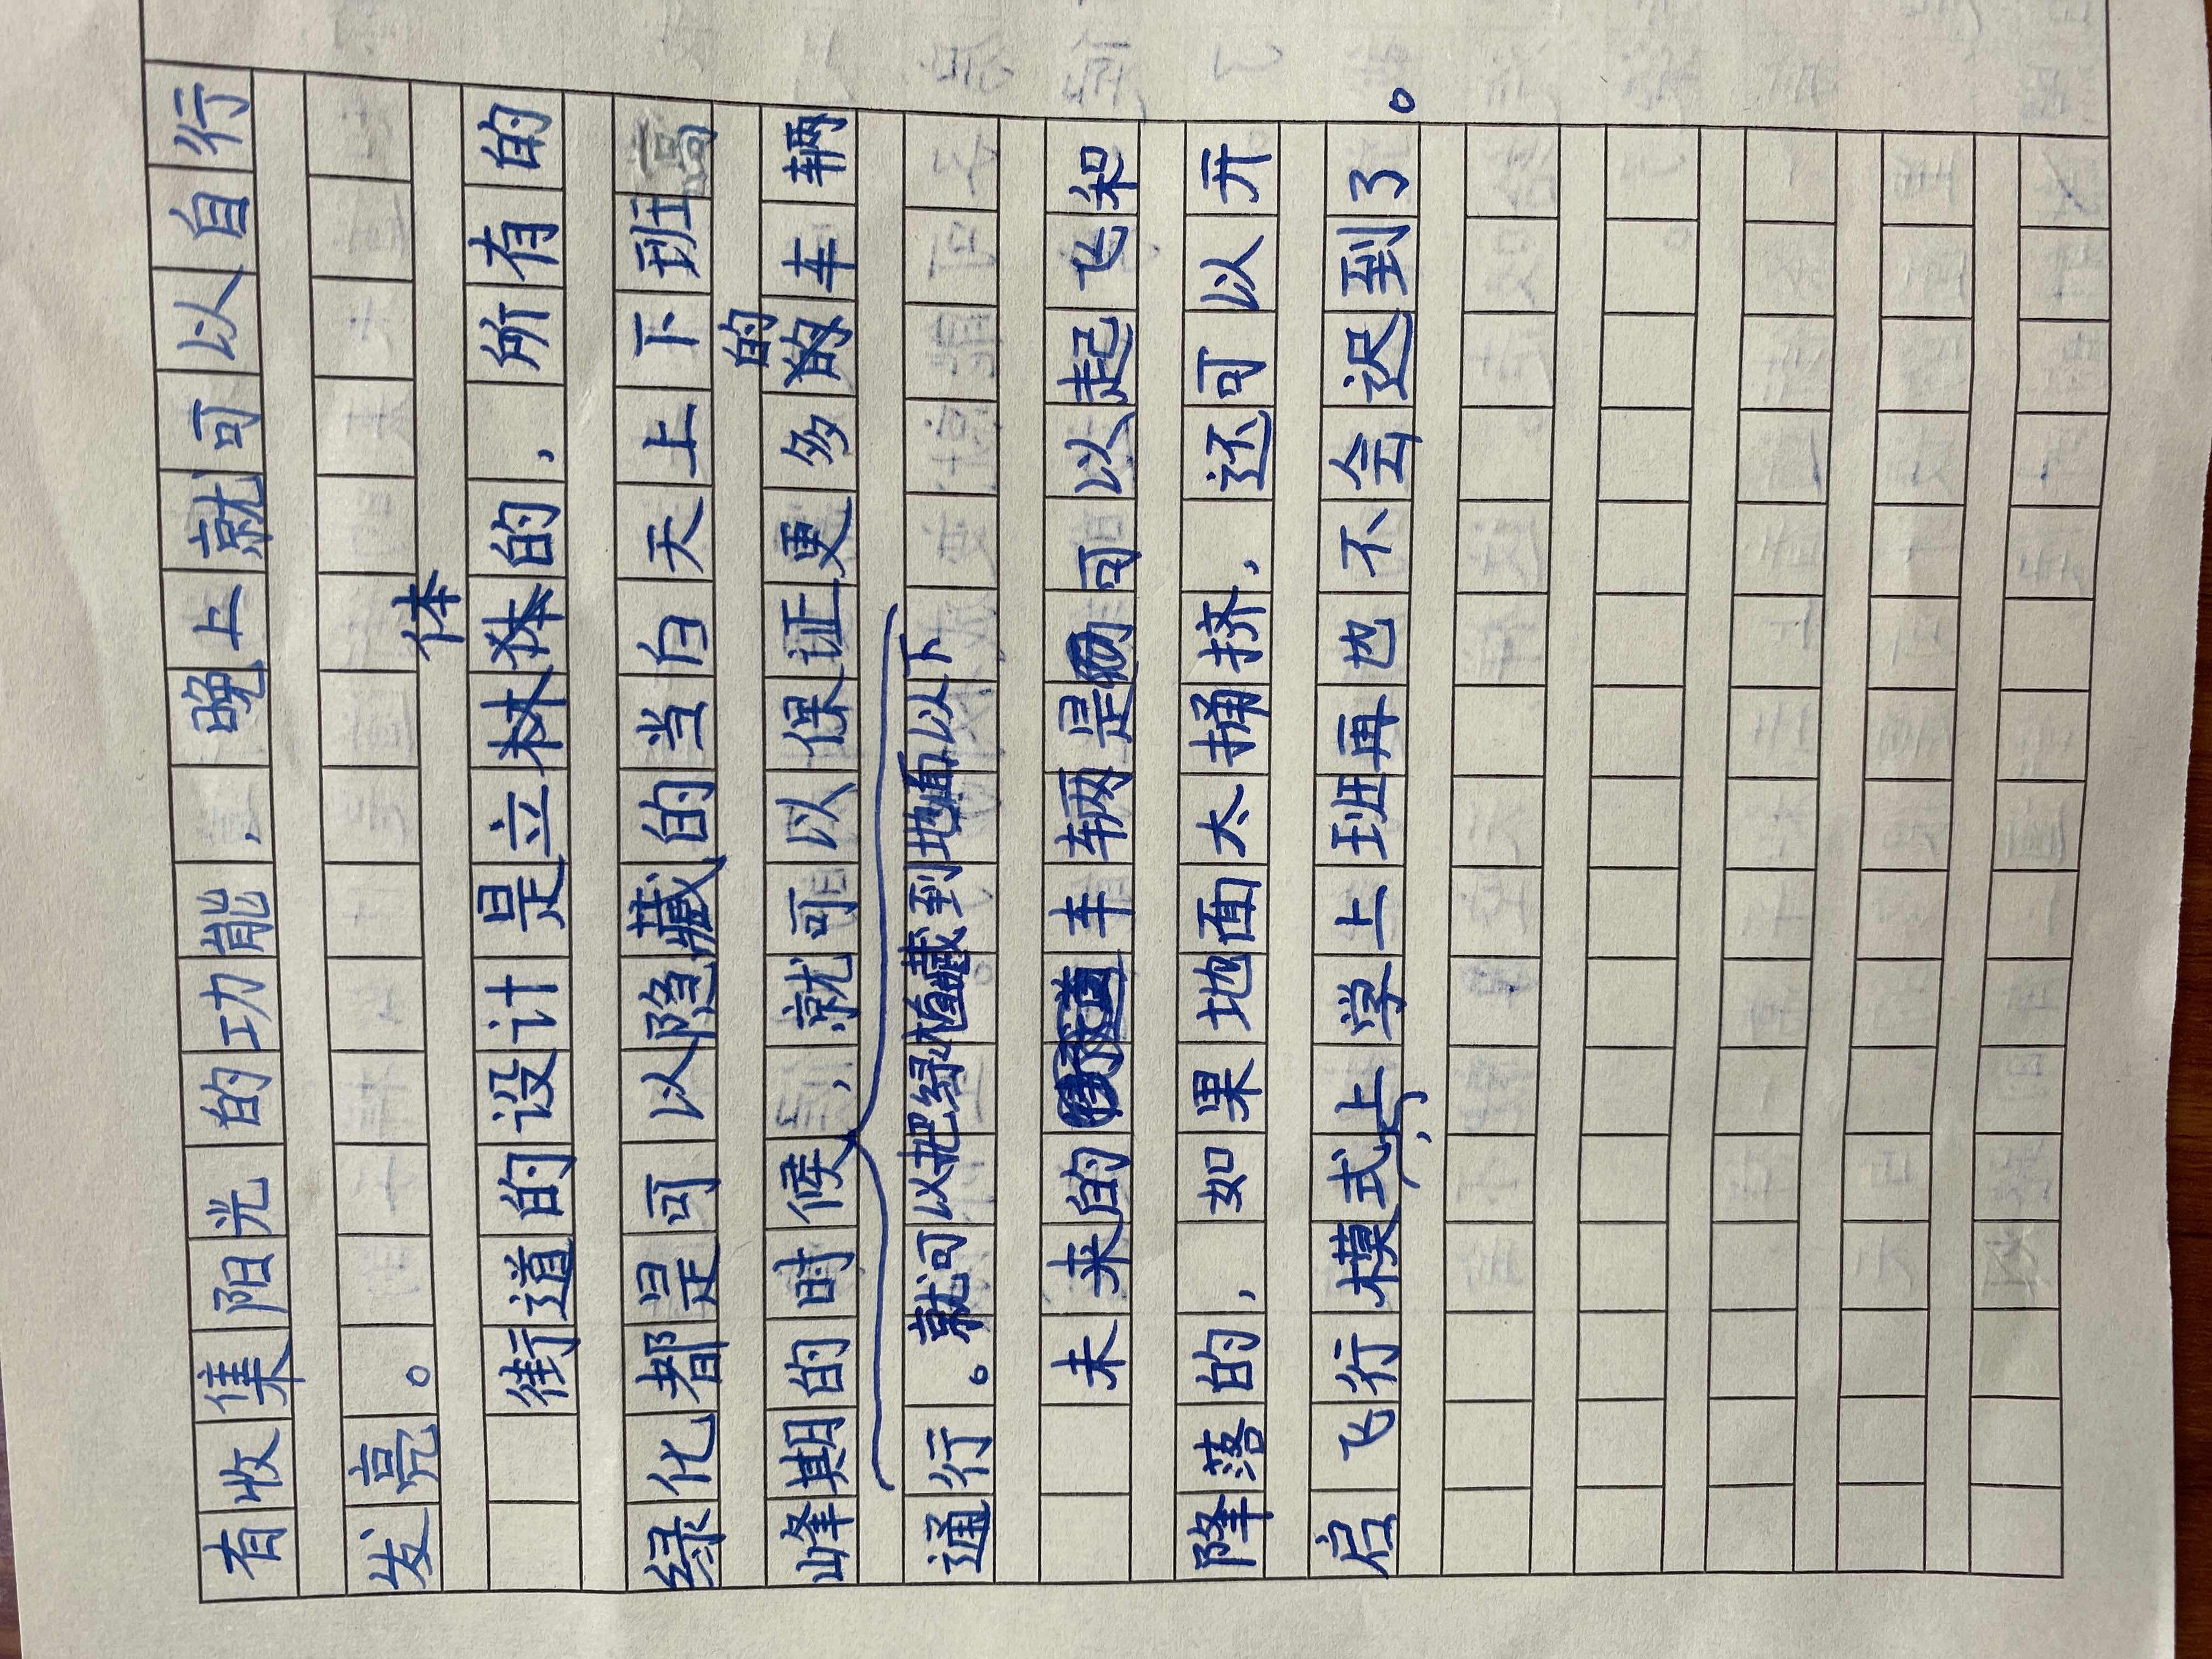 有收集阳光的功能，晚上就可以自行
发亮。
街道的设计是立体的，所有的
绿化都是可以隐藏的当白天上下班高
峰期的时候，就可以保证更多的车辆
就可以把绿植藏到地面以下
通行。
未来的车辆是可以起飞和
降落的，如果地面太捅挤，还可以开
启飞行模式，上学上班再也不会迟到了。